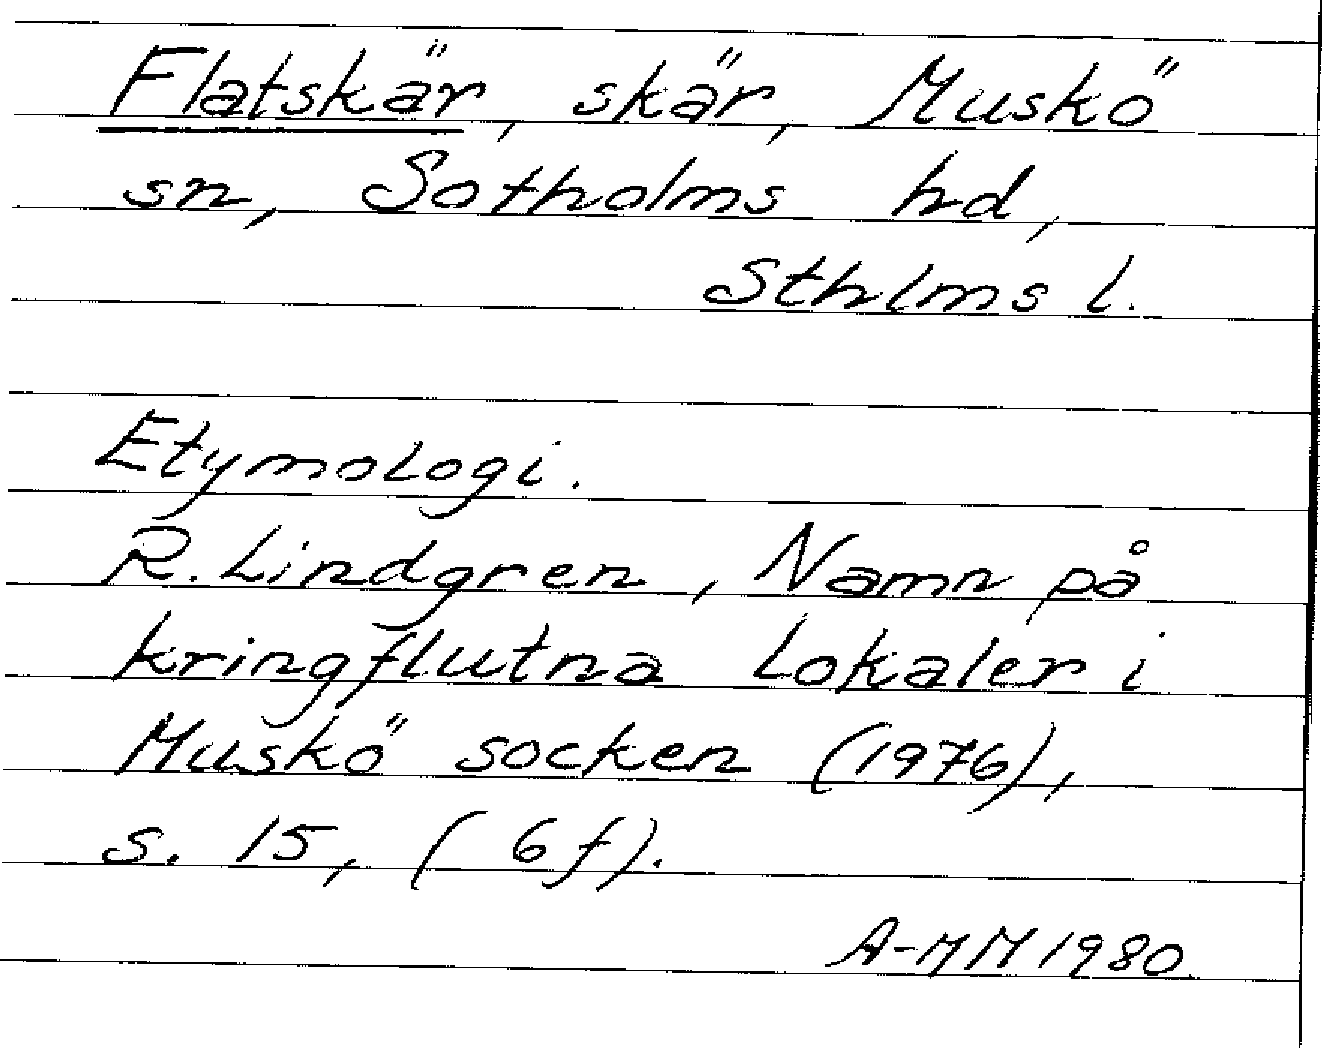 Flatskär, skär, Muskö
sn, Sotholms hd,
Sthlms l.
Etymologi.
R. Lindgren, Namn på
kringflutna lokaler i
Muskö socken (1976),
s. 15, (6f).
A-MM 1980